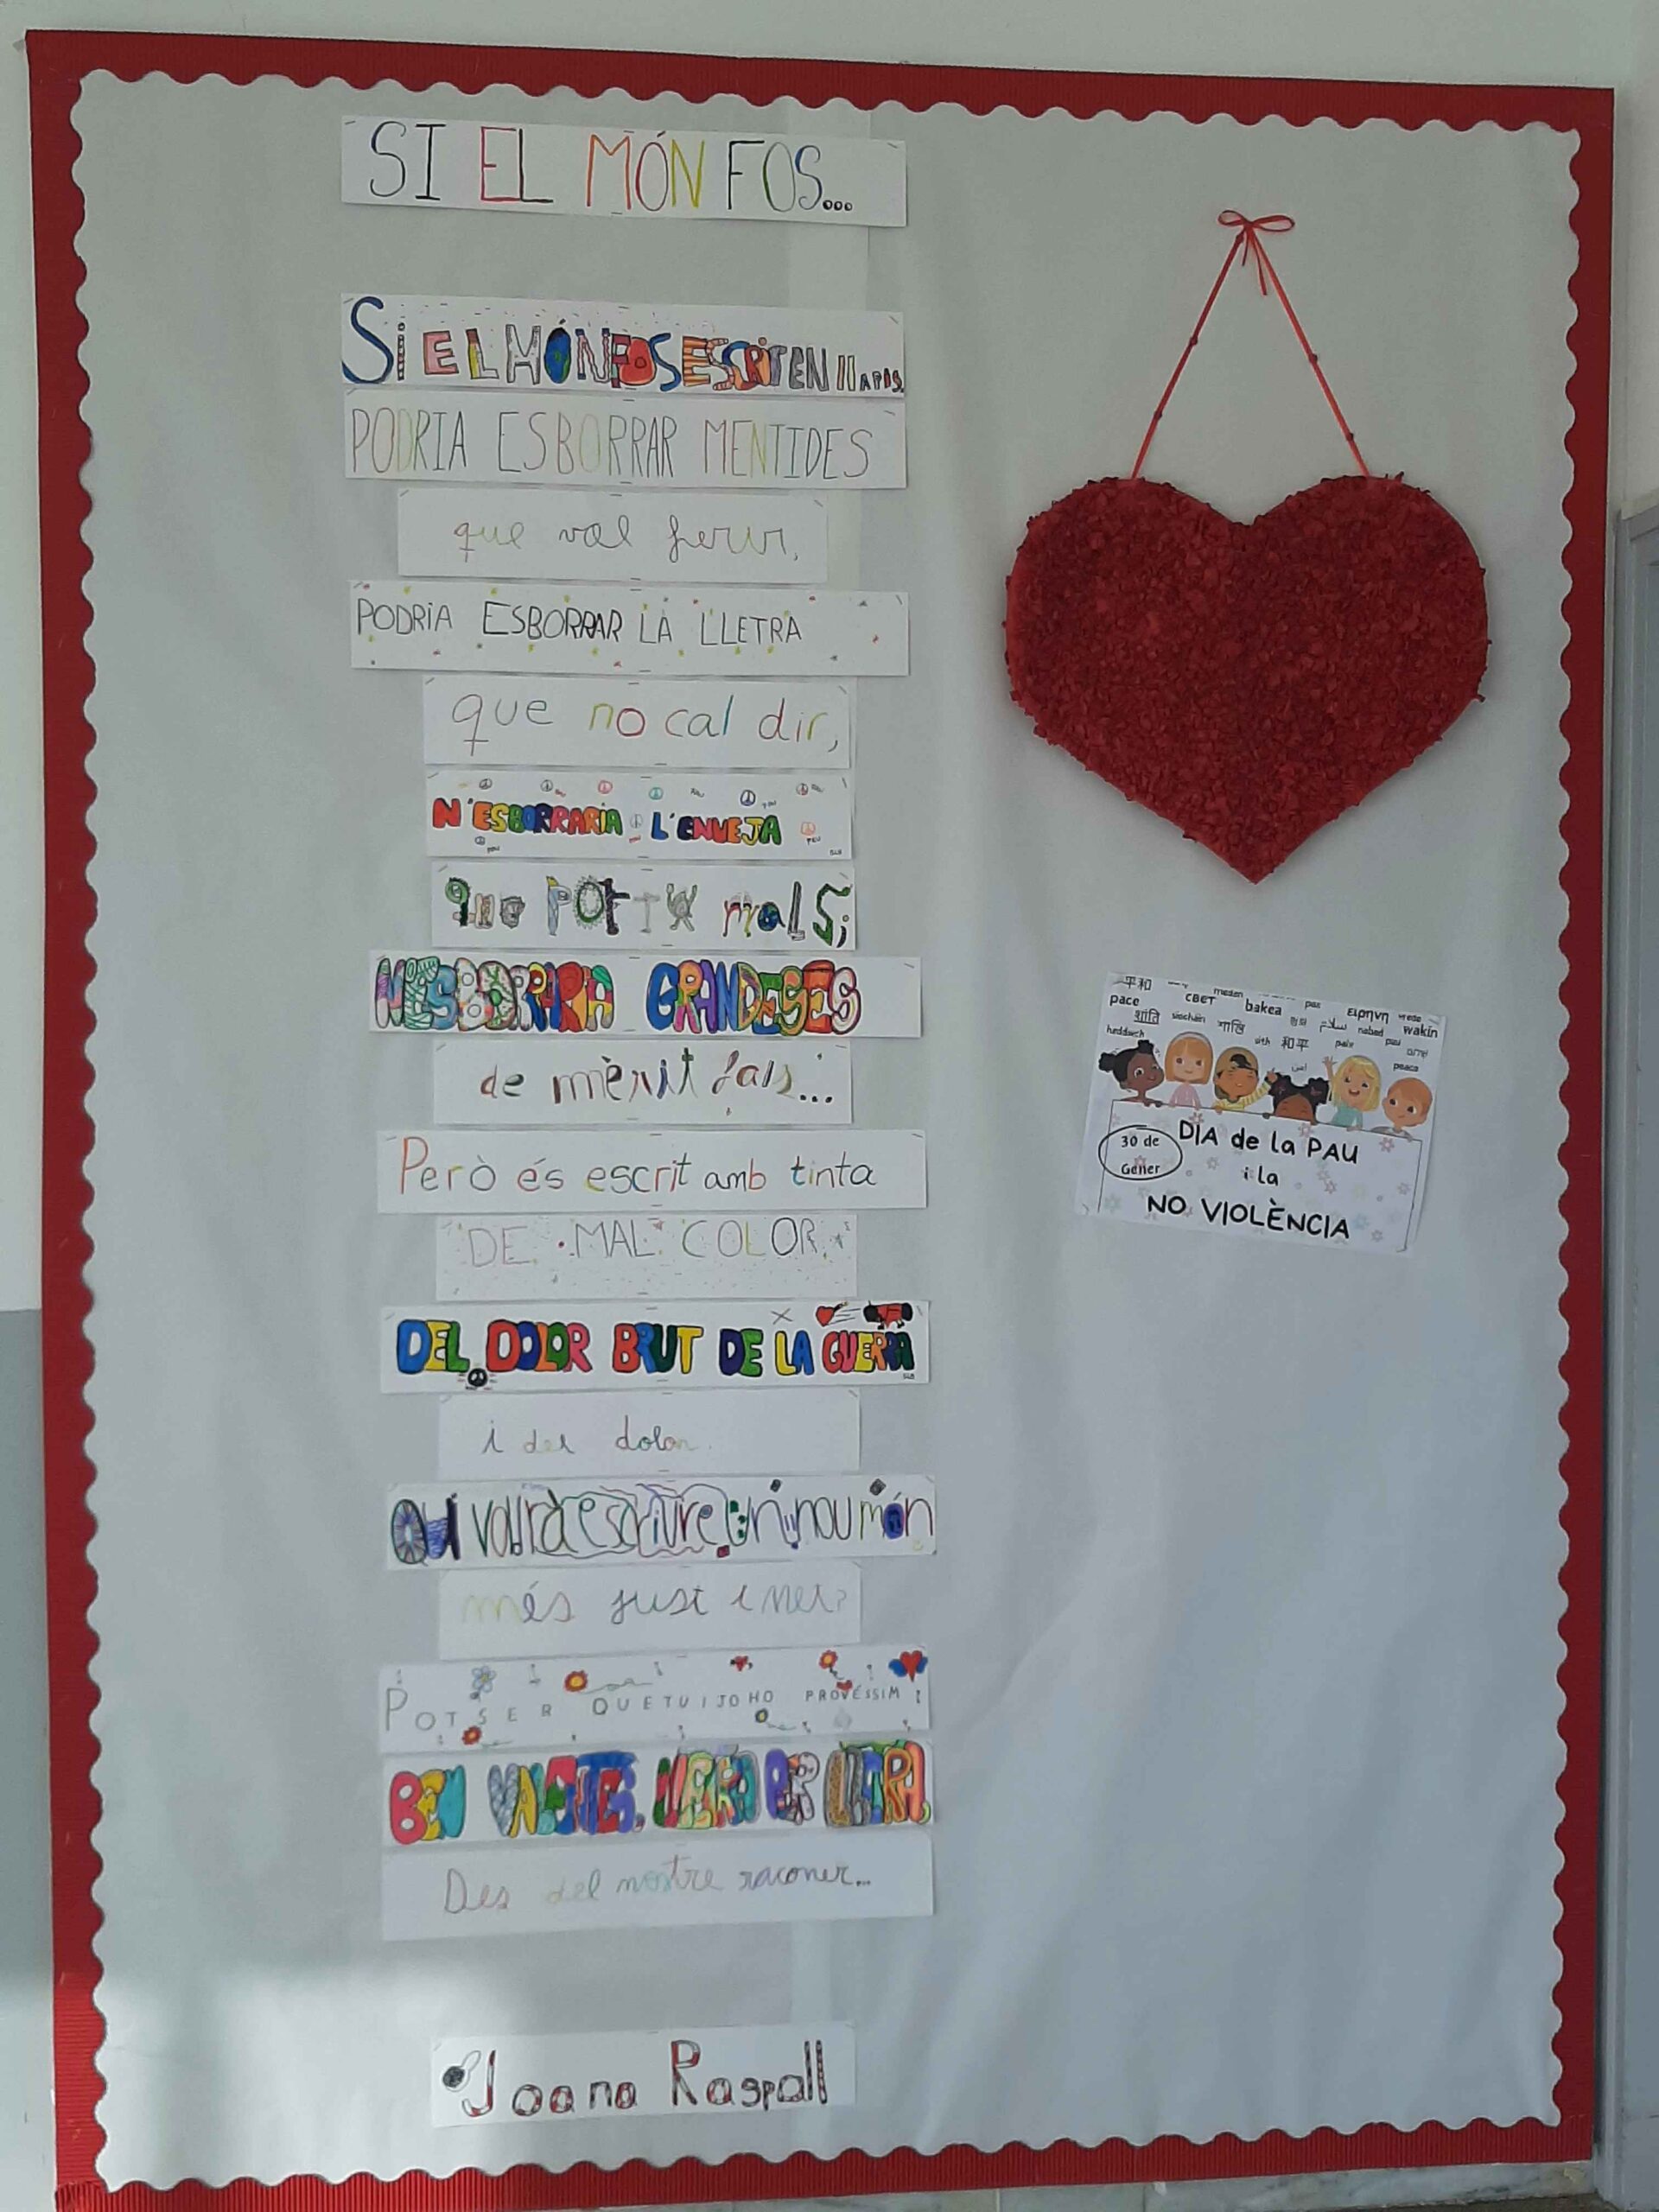 SI EL MÓN FOS...
Si EL MÓN FOS ESCRIT EN llAPIS,
PODRIA ESBORRAR MENTIDES
que val ferir,
PODRiA ESBORRAR LA LLETRA
que no cal dir,
N'ESBORRARIA L'ENVEJA
que PORTA malS;
N'ESBORRARIA GRANDESES
de mèrit fals...
Però és escrit amb tinta
DE MAL COLOR,
DEL DOLOR BRUT DE LA GUERRA
i del dolor.
Qui voldrà escriure un nou món
més just i net?
POTSER QUE TU I JO HO PROVÉSSIM
BEN VALENTES, LLETRA PER LLETRA,
Des del nostre raconet...
Joana Raspall
平和 meden pas мево
pace CBET bakea ειρηνη wakin
शांति siochain শান্তি 평화 سلام nabad pau
heddwch sith 和平 paix
peace
30 de
Gener
DIA de la PAU
i la
NO VIOLÈNCIA